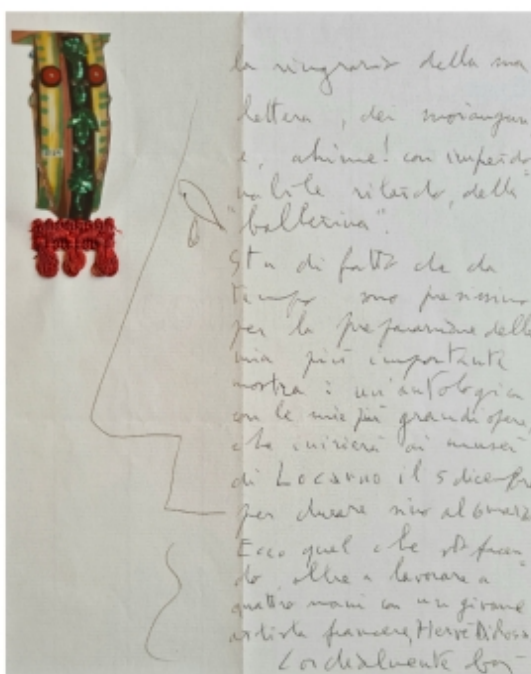 la ringrazio della sua
lettera, dei
e, ahimé! con imperdo
nabile ritardo, della
"ballerina".
Sta di fatto che da
tempo sono
per la preparazione della
mia più importante
mostra: un'antologica
con le mie più grandi opere,
che inizierà ai musei
di LOCARNO il 5 dicembre
per durare sino al
Ecco quel che sto facen
do, oltre a lavorare a
quattro mani con un giovane
artista francese, Hervé Di Rosa
Cordialmente baj